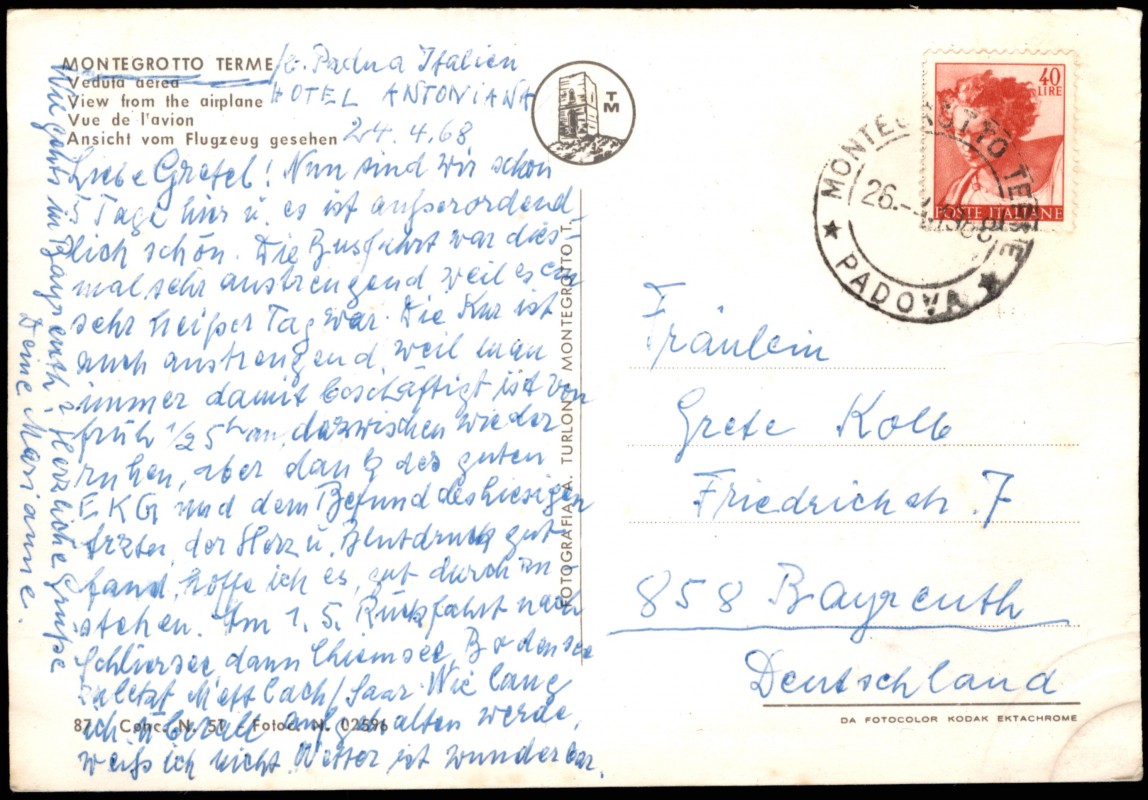 MONTEGROTTO TERME
Veduta aerea
View from the airplane
Vue de l'avion
Ansicht vom Flugzeug gesehen
b. Padua Italien
HOTEL ANTONIANA
24.4.68
Liebe Gretel! Nun sind wir schon
5 Tage hier u. es ist außerordend
lich schön. Die Busfahrt war dies-
mal sehr anstrengend weil es ein
sehr heißer Tag war. Die Kur ist
auch anstrengend, weil man
immer damit beschäftigt ist von
früh 1/2 5h an, dazwischen wieder
ruhen, aber dank des guten
EKG und dem Befund des hiesigen
Arztes, der Herz u. Blutdruck gut
fand, hoffe ich es, gut durchzu-
stehen. Am 1.5. Rückfahrt nach
Schliersee, dann Chiemsee, Bodensee
zuletzt Mettlach/Saar. Wie lang
ich überall aufgehalten werde,
weiß ich nicht. Wetter ist wunderbar.
Wie gehts in Bayreuth? Herzliche Grüße
Deine Marianne.
87 - Conc. N. 51 - Fotoc. N. 02596
FOTOGRAFIA A. TURLON MONTEGROTTO T.
TM
40
LIRE
POSTE ITALIANE
MONTEGROTTO TERME
PADOVA
26.-4.1968
Fräulein
Grete Kolb
Friedrichstr. 7
858 Bayreuth
Deutschland
DA FOTOCOLOR KODAK EKTACHROME